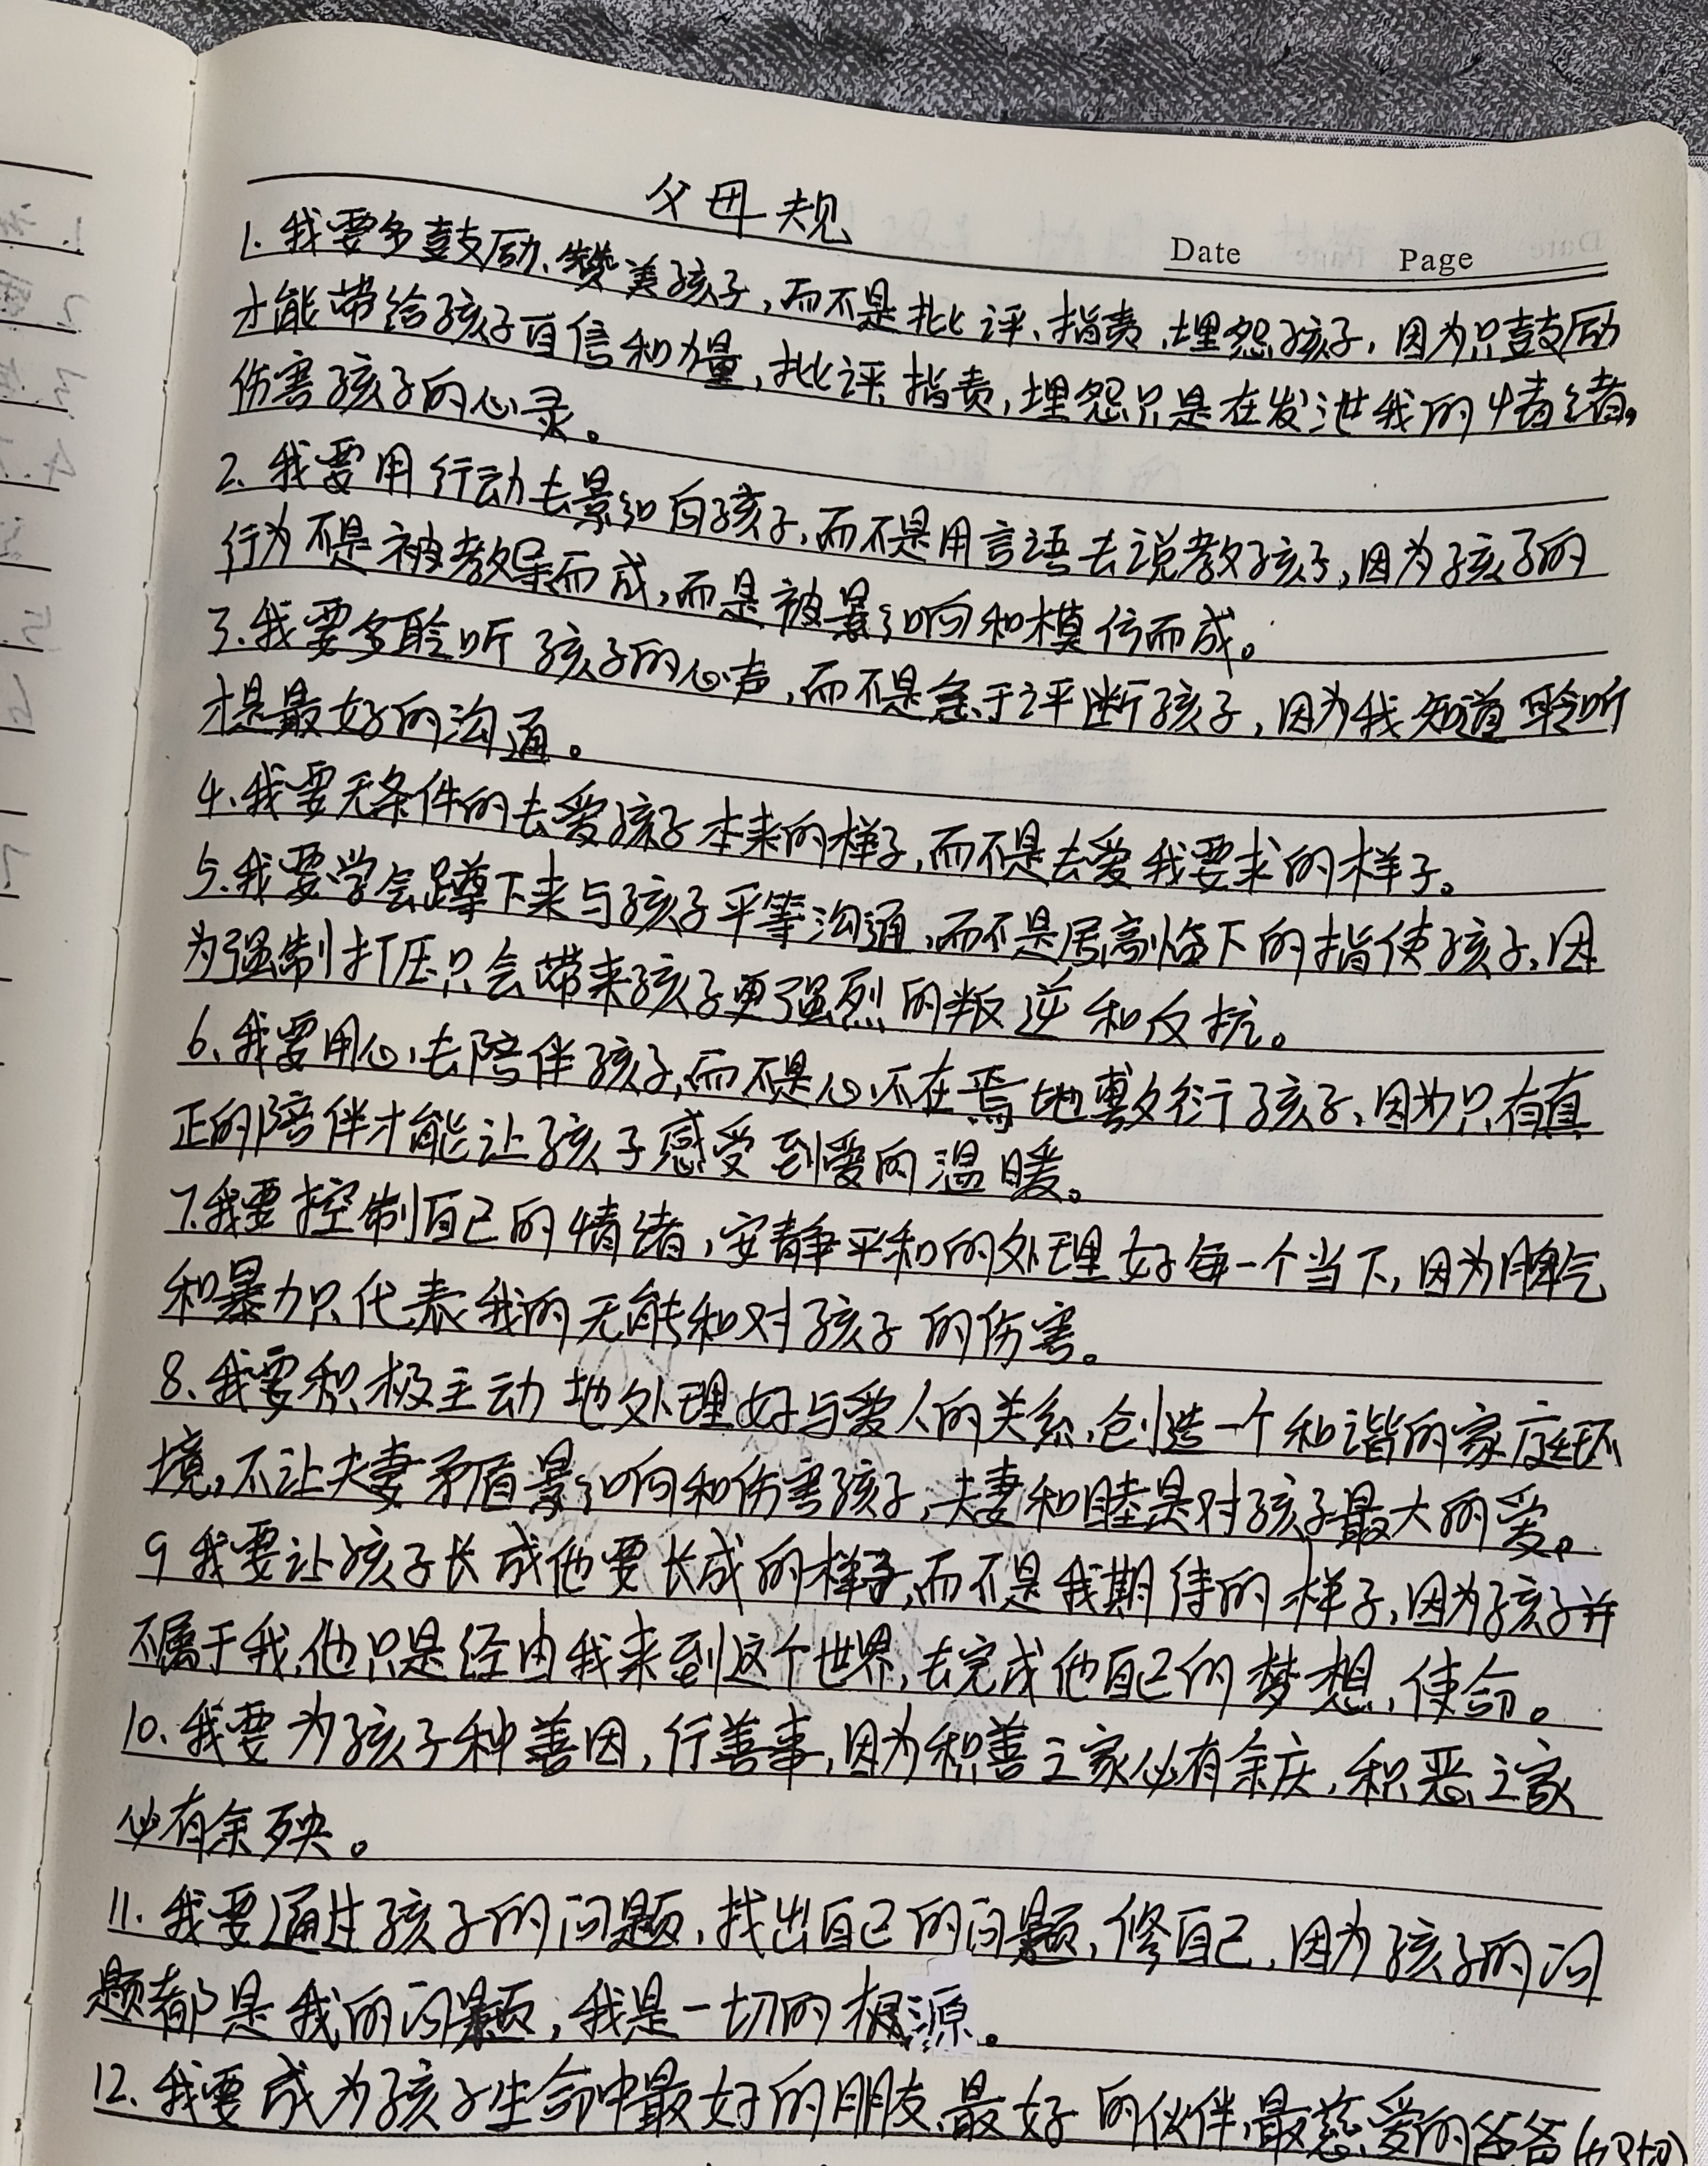 父母规
Date Page
1.我要多鼓励、赞美孩子,而不是批评、指责、埋怨孩子,因为只鼓励
才能带给孩子自信和力量,批评、指责,埋怨只是在发泄我的情绪,
伤害孩子的心灵。
2.我要用行动去影响孩子,而不是用言语去说教孩子,因为孩子的
行为不是被教导而成,而是被影响和模仿而成。
3.我要多聆听孩子的心声,而不是急于评断孩子,因为我知道聆听
才是最好的沟通。
4.我要无条件的去爱孩子本来的样子,而不是去爱我要求的样子。
5.我要学会蹲下来与孩子平等沟通,而不是居高临下的指使孩子,因
为强制打压只会带来孩子更强烈的叛逆和反抗。
6.我要用心去陪伴孩子,而不是心不在焉地敷衍孩子,因为只有真
正的陪伴才能让孩子感受到爱的温暖。
7.我要控制自己的情绪,安静平和的处理好每一个当下,因为脾气
和暴力只代表我的无能和对孩子的伤害。
8.我要积极主动地处理好与爱人的关系,创造一个和谐的家庭环
境,不让夫妻矛盾影响和伤害孩子,夫妻和睦是对孩子最大的爱。
9我要让孩子长成他要长成的样子,而不是我期待的样子,因为孩子并
不属于我,他只是经由我来到这个世界,去完成他自己的梦想,使命。
10.我要为孩子种善因,行善事,因为积善之家必有余庆,积恶之家
必有余殃。
11.我要通过孩子的问题,找出自己的问题,修自己,因为孩子的问
题都是我的问题,我是一切的根源。
12.我要成为孩子生命中最好的朋友、最好的伙伴,最慈爱的爸爸